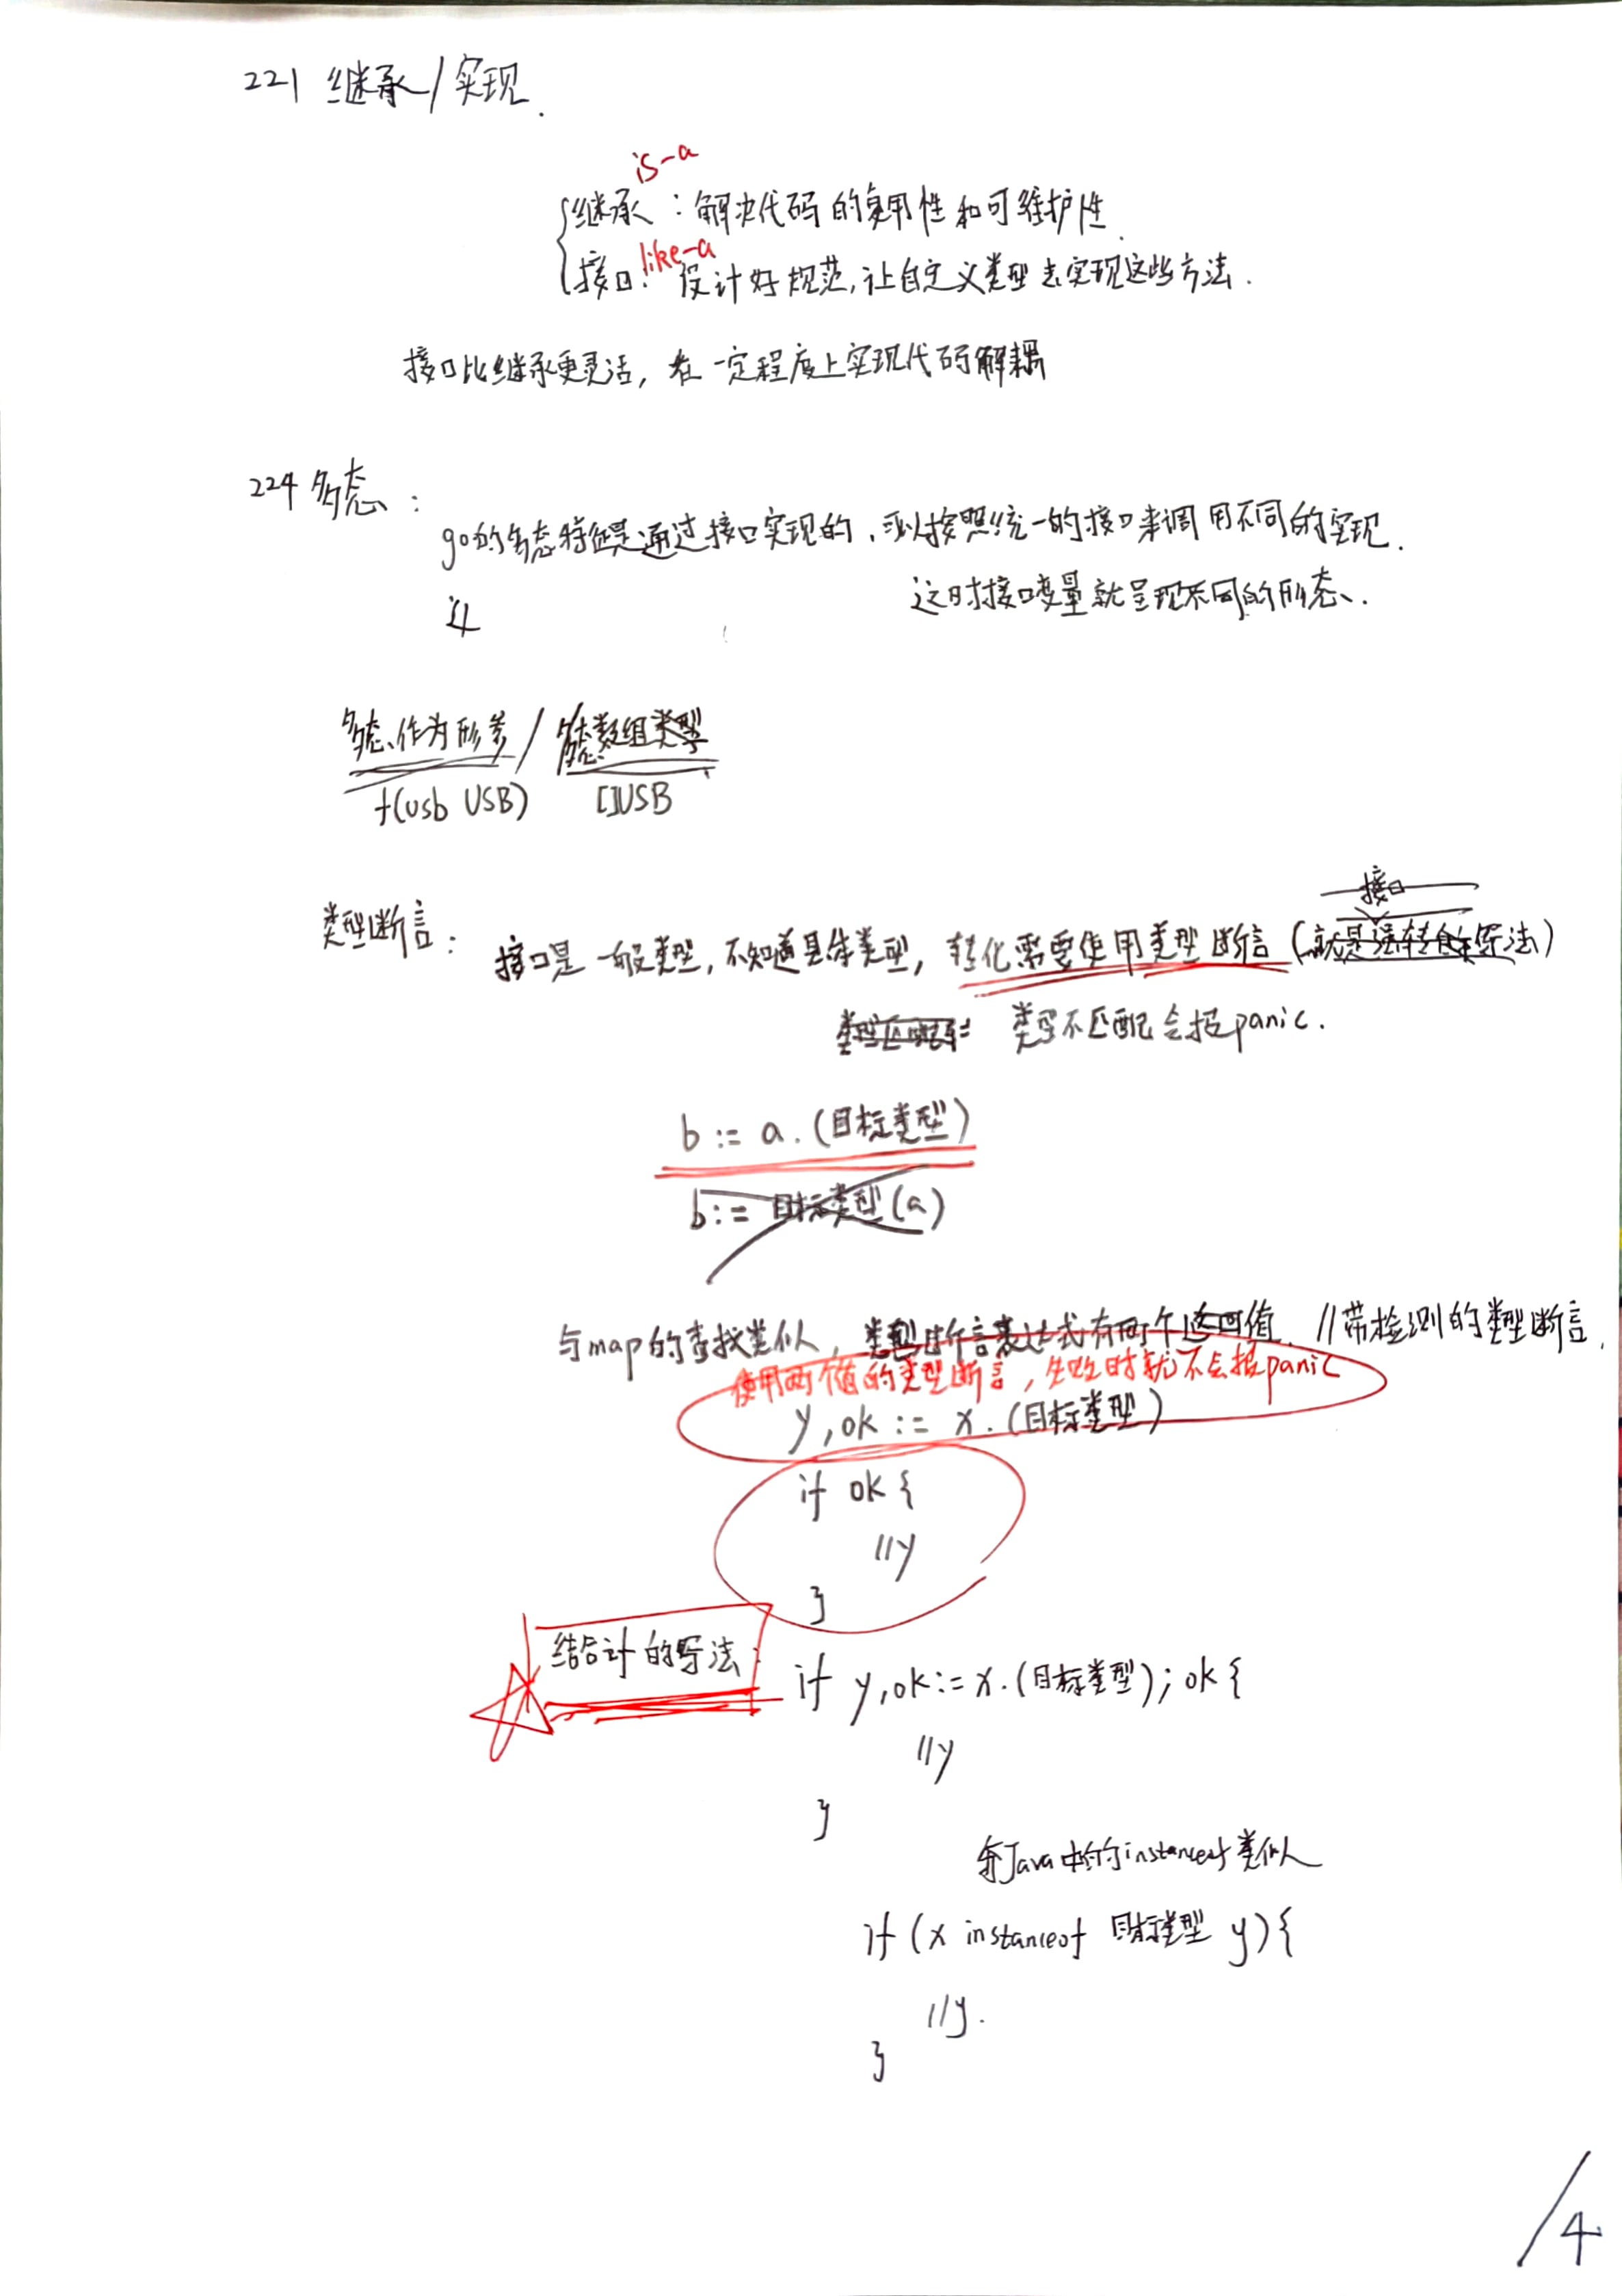 221 继承/实现.
is-a
继承：解决代码的复用性和可维护性.
like-a
接口：设计好规范,让自定义类型去实现这些方法.
接口比继承更灵活，在一定程度上实现代码解耦
224 多态：
go的多态特征是通过接口实现的，可以按照统一的接口来调用不同的实现.
这时接口变量就呈现不同的形态.
多态作为形参 / 多态数组类型
f(usb USB) []USB
接口
类型断言：接口是一般类型,不知道具体类型，转化需要使用类型断言(就是强转的写法)
类型不匹配会报panic.
b := a.(目标类型)
b := 目标类型(a)
与map的查找类似，类型断言表达式有两个返回值. //带检测的类型断言.
使用两个值的类型断言，失败时就不会报panic
y,ok := x.(目标类型)
if ok {
//y
}
结合if的写法：if y,ok:=x.(目标类型);ok {
//y
}
和Java中的instanceof类似
if (x instanceof 目标类型 y){
//y.
}
/4